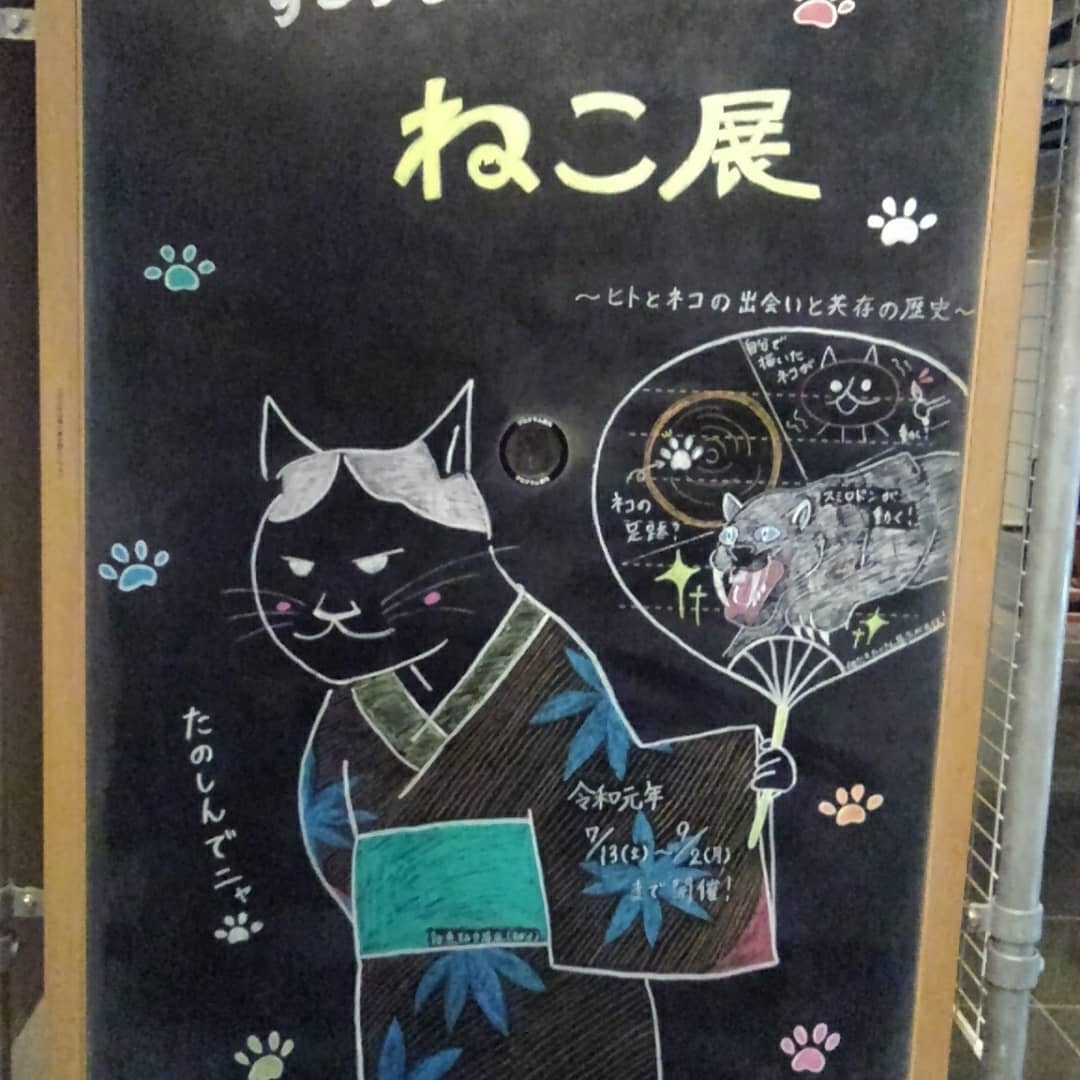 ねこ展
～ヒトとネコの出会いと共存の歴史～
自分で
描いた
ネコが
動く!
ネコの
足跡?
スミロドンが
動く!
たのしんでニャ
令和元年
7/13(土)～9/2(月)
まで開催!